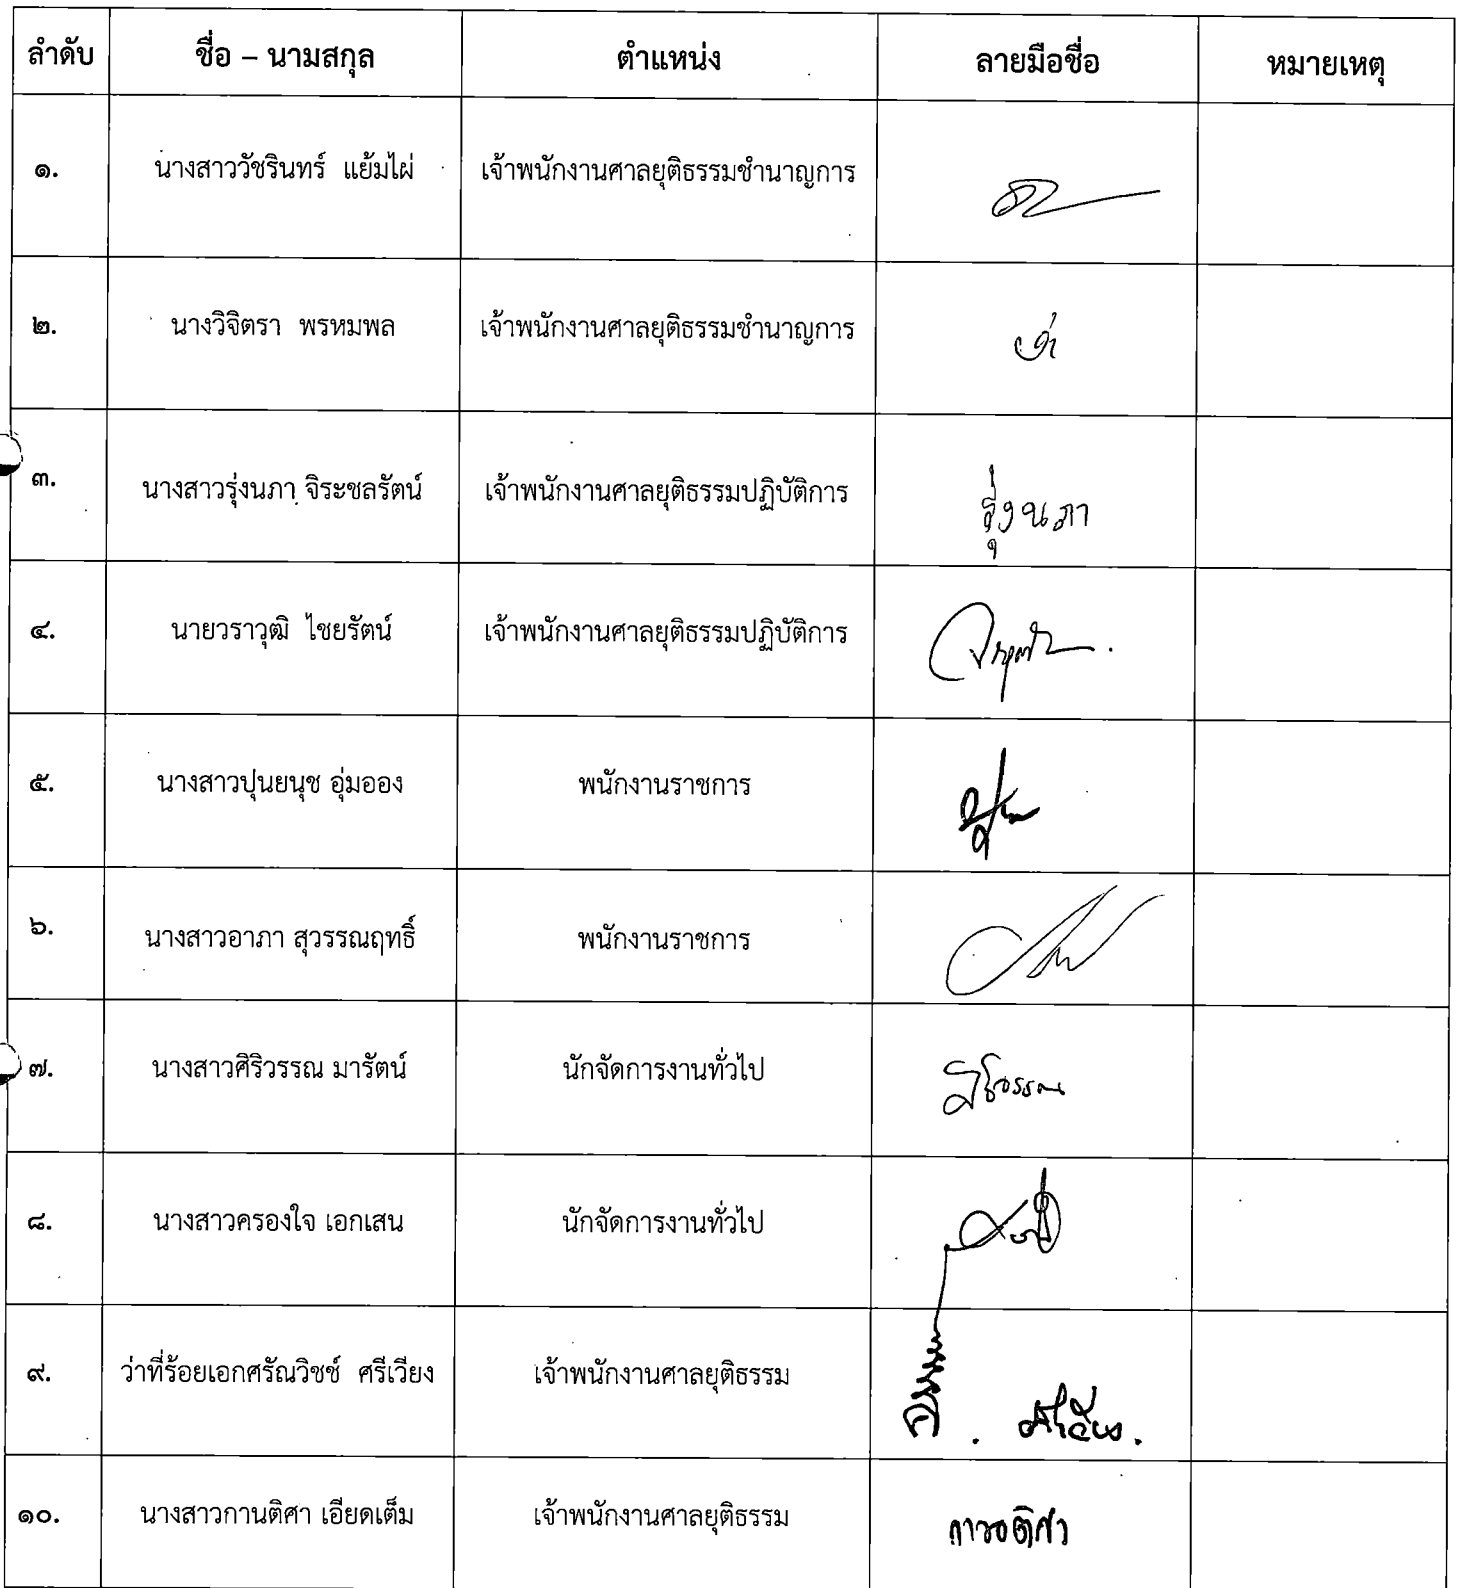 ลำดับ ชื่อ – นามสกุล ตำแหน่ง ลายมือชื่อ หมายเหตุ
๑. นางสาววัชรินทร์ แย้มไผ่ เจ้าพนักงานศาลยุติธรรมชำนาญการ
๒. นางวิจิตรา พรหมพล เจ้าพนักงานศาลยุติธรรมชำนาญการ
๓. นางสาวรุ่งนภา จิระชลรัตน์ เจ้าพนักงานศาลยุติธรรมปฏิบัติการ รุ่งนภา
๔. นายวราวุฒิ ไชยรัตน์ เจ้าพนักงานศาลยุติธรรมปฏิบัติการ
๕. นางสาวปุนยนุช อุ่มออง พนักงานราชการ
๖. นางสาวอาภา สุวรรณฤทธิ์ พนักงานราชการ
๗. นางสาวศิริวรรณ มารัตน์ นักจัดการงานทั่วไป ศิริวรรณ
๘. นางสาวครองใจ เอกเสน นักจัดการงานทั่วไป
๙. ว่าที่ร้อยเอกศรัณวิชช์ ศรีเวียง เจ้าพนักงานศาลยุติธรรม
๑๐. นางสาวกานติศา เอียดเต็ม เจ้าพนักงานศาลยุติธรรม กานติศา